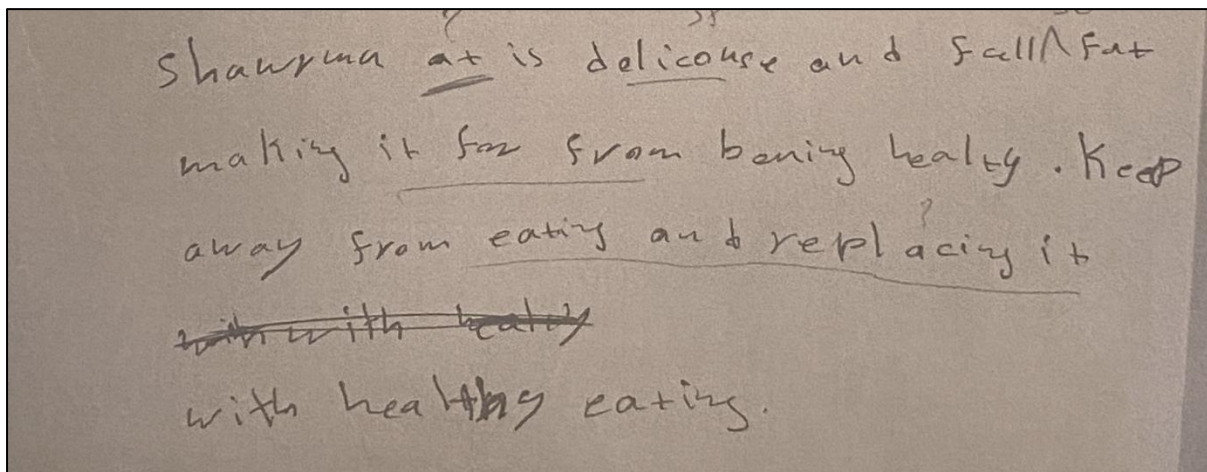 shawrma at is delicouse and fall fat
making it far from bening healty. Keep
away from eating and replacing it
with with healty
with healthy eating.